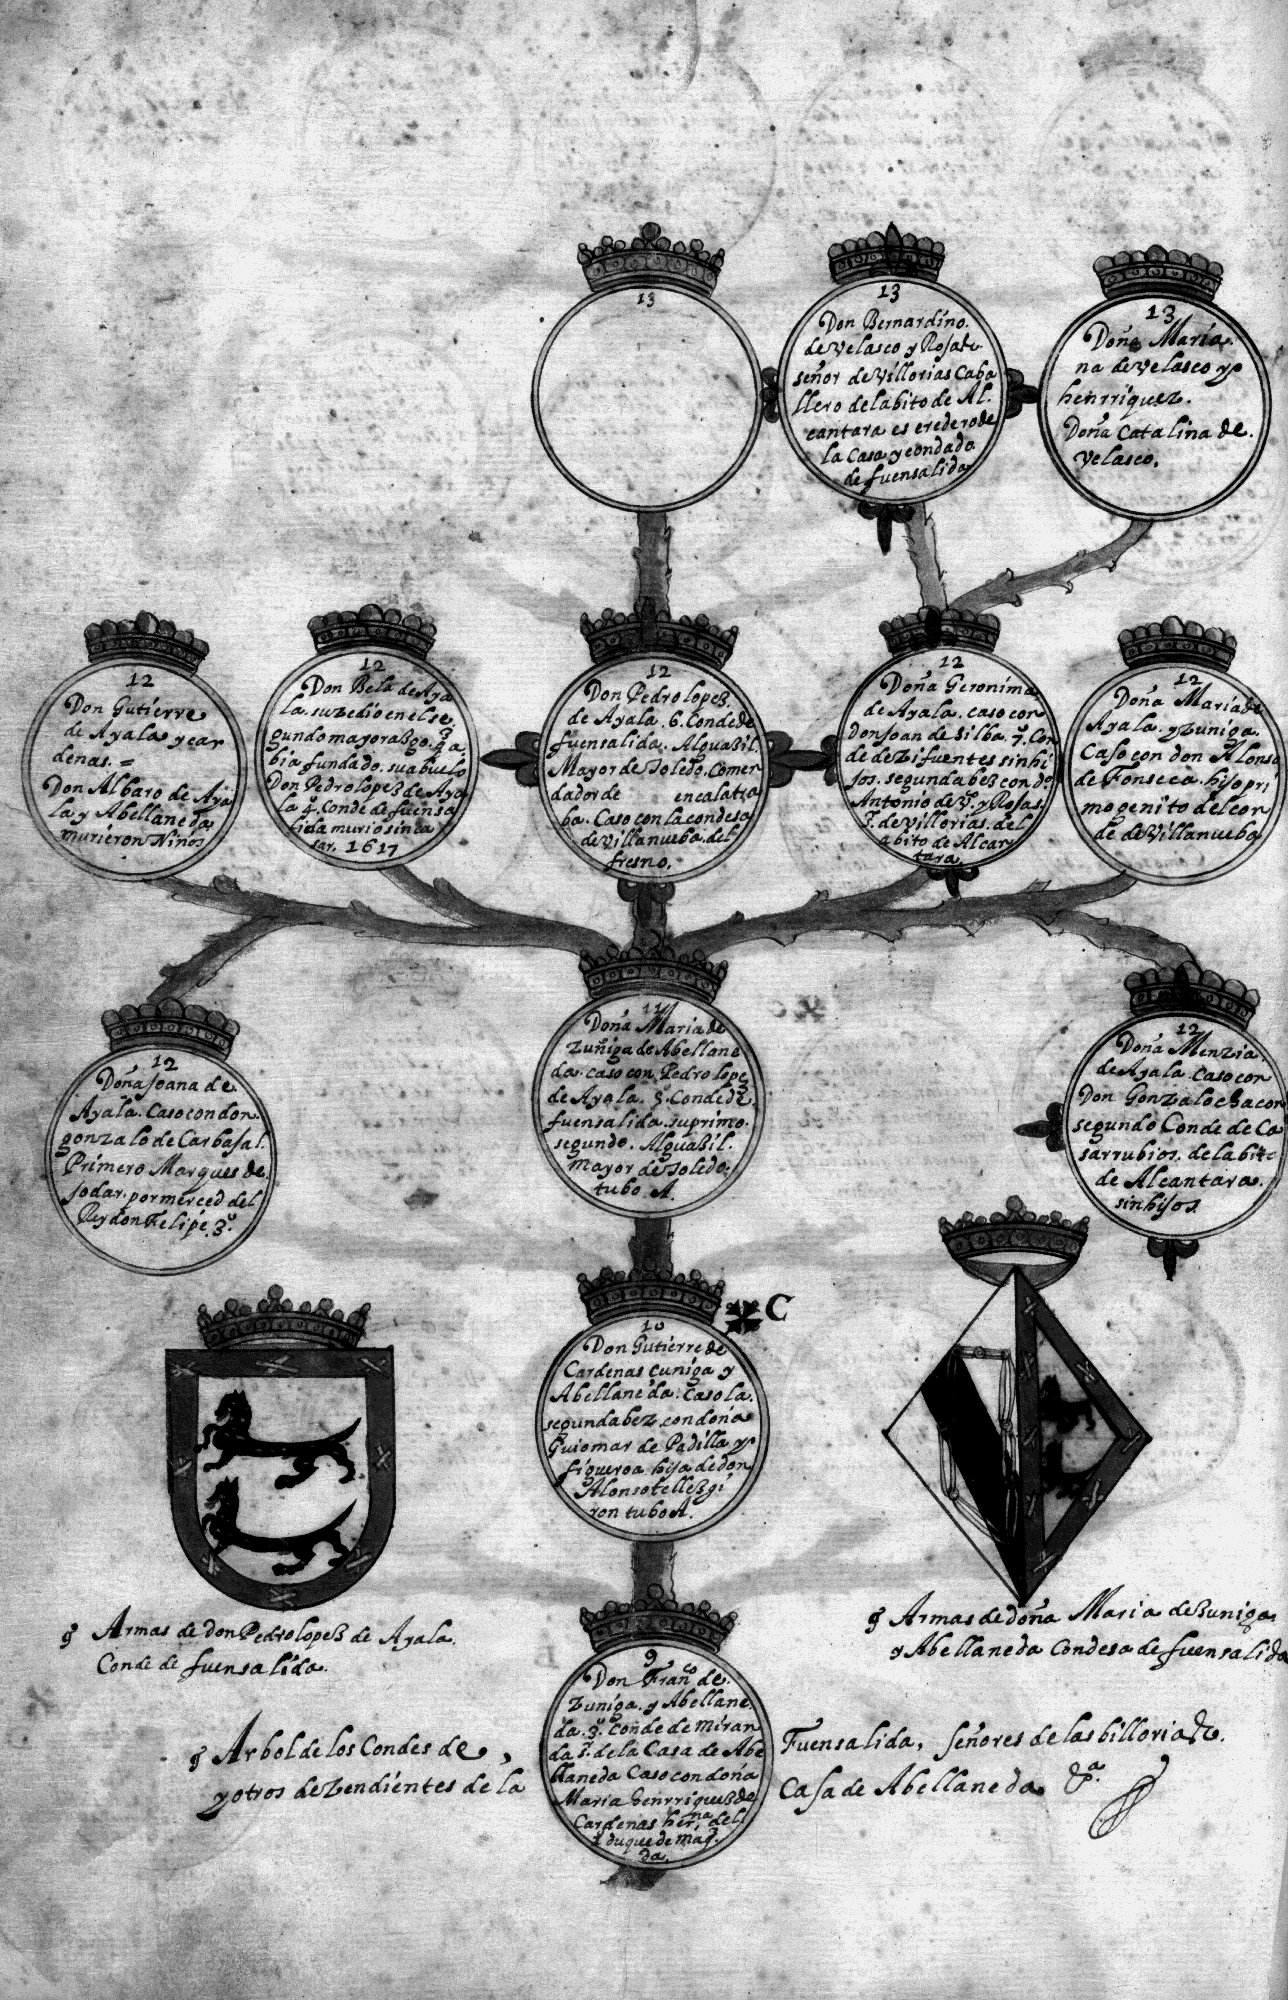 13
13
Don Bernardino.
de Velasco y Rosas de
señor de Villorias Caba
llero del abito de Al.
cantara es eredero de
la Casa y condado
de fuensalida
13
Doña Maria.
na de Velasco y
henrriquez.
Doña Catalina de.
Velasco.
12
Don Gutierre
de Ayala y car
denas. =
Don Albaro de Aya
la y Abellaneda
murieron Niños
12
Don Bela de Aya
la. suzedio en el se.
gundo mayorazgo. q̃ a
bia fundado. su abuelo
Don Pedro lopez de Aya
la 4º. Conde de fuensa
lida murio sin ca
sar. 1617
12
Don Pedro lopez
de Ayala. 6. Conde de
fuensalida. Alguazil.
Mayor de Toledo. Comen
dador de en calatra
ba. Caso con la condesa
de Villanueba. del
fresno.
12
Doña Geronima
de Ayala. caso con
don Joan de Silba. 7º. Con
de de zifuentes sin hi
jos. segunda bez con do.
Antonio de Vº. y Rojas.
Sº. de Villorias. del
abito de Alcan
tara.
12
Doña Maria de
Ayala. y zuniga.
Caso con don Alonso
de Fonseca. hijo pri
mogenito del con
de de Villanueba
12
Doña Joana de
Ayala. Caso con don.
gonzalo de Carbajal.
Primero Marques de
Jodar. por merced del
Rey don Felipe. 3º.
11
Doña Maria de
zuñiga de Abellane
da. caso con Pedro lopez
de Ayala. 5. Conde de
fuensalida. su primo.
segundo. Alguazil.
mayor de Toledo.
tubo A.
12
Doña Menzia.
de Ayala. caso con
Don Gonzalo chacon
segundo Conde de Ca
sarrubios. del abito
de Alcantara.
sin hijos.
C
10
Don Gutierre de
Cardenas cuniga y
Abellaneda. Caso la.
segunda bez. con doña
Guiomar de Padilla y
figueroa hija de don
Alonso tellez gi
ron tubo A.
Armas de don Pedro lopez de Ayala.
Conde de fuensalida.
Armas de doña Maria de zuniga
y Abellaneda Condesa de fuensalida
9
Don Franco de.
zuniga. y Abellane
da. 3º. Conde de miran
da Sº. de la Casa de Abe
llaneda Caso con doña
Maria henrriquez de
Cardenas herna. del
1 duque de maq
da.
Arbol de los Condes de, Fuensalida, señores de las billorias &c.
y otros dezendientes de la Casa de Abellaneda